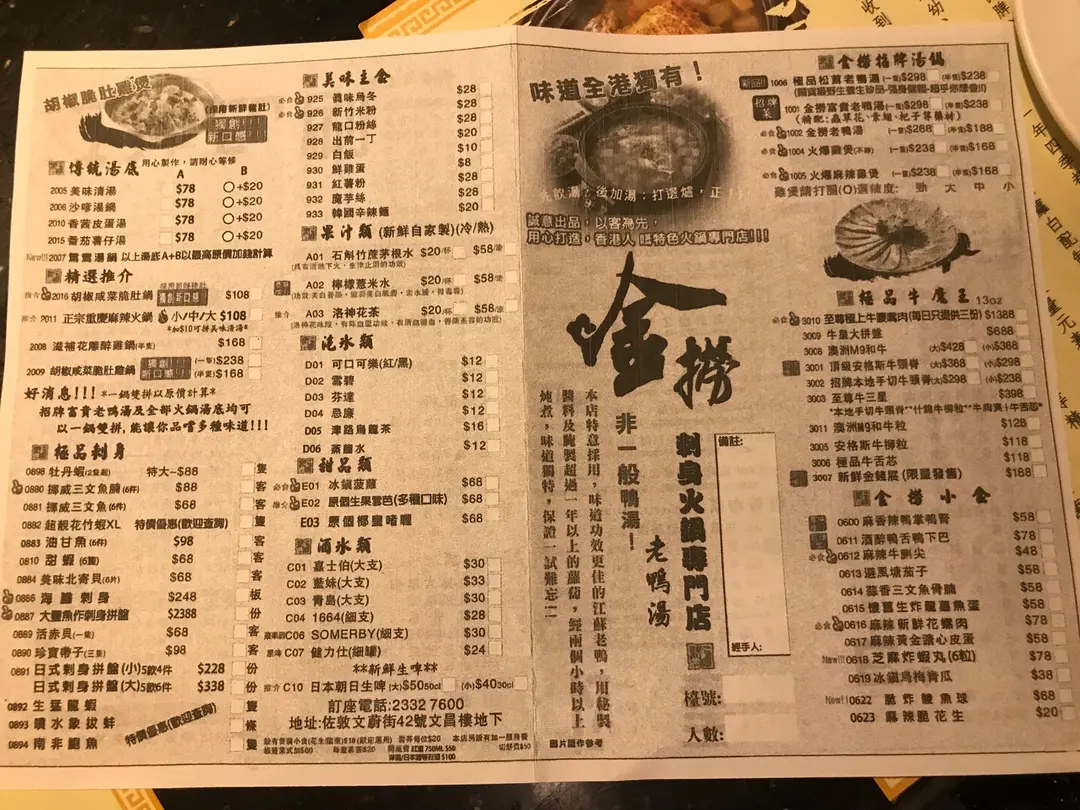 胡椒脆肚雞煲
(採用新鮮豬肚)
獨創!!!
新口感!!!
傳統湯底 用心製作，請耐心等候
A B
2005 美味清湯 $78 +$20
2006 沙嗲湯鍋 $78 +$20
2010 香茜皮蛋湯 $78 +$20
2015 番茄薯仔湯 $78 +$20
New!! 2007 鴛鴦湯鍋 以上湯底A+B以最高原價加錢計算
精選推介
推介 2016 胡椒咸菜脆肚鍋 獨創新口感! $108
推介 2011 正宗重慶麻辣火鍋 小/中/大 $108
*加$10可拼美味清湯*
2008 滋補花雕醉雞鍋(半隻) $168
2009 胡椒咸菜脆肚雞鍋 獨創!!! 新口感!!! (一隻)$238
(半隻)$168
好消息!!! *一鍋雙拼以原價計算*
招牌富貴老鴨湯及全部火鍋湯底均可
以一鍋雙拼,能讓你品嚐多種味道!!!
極品刺身
0898 牡丹蝦(2隻起) 特大-$88 隻
0880 挪威三文魚腩(6件) $88 客
0881 挪威三文魚(6件) $68 客
0882 超靚花竹蝦XL 特價優惠(歡迎查詢) 隻
0883 油甘魚(6件) $98 客
0810 甜蝦(6隻) $68 客
0884 美味北寄貝(6片) $68 客
0886 海膽刺身 $248 板
0887 大廚魚作刺身拼盤 $2388 份
0889 活赤貝(一隻) $68 客
0890 珍寶帶子(三隻) $98 客
0891 日式刺身拼盤(小)5款4件 $228 份
日式刺身拼盤(大)5款6件 $338 份
0892 生猛龍蝦 隻
0893 噴水象拔蚌 特價優惠(歡迎查詢) 條
0894 南非鮑魚 隻
美味主食
必食 925 真味烏冬 $28
必食 926 新竹米粉 $28
927 龍口粉絲 $28
928 出前一丁 $20
929 白飯 $10
930 鮮雞蛋 $8
931 紅薯粉 $28
932 魔芋絲 $28
933 韓國辛辣麵 $20
果汁類 (新鮮自家製)(冷/熱)
A01 石斛竹蔗茅根水 $20/杯 $58/渣
(具有清熱下火，生津止渴的功效)
A02 檸檬薏米水 $20/杯 $58/渣
推介 A03 洛神花茶 $20/杯 $58/渣
汽水類
D01 可口可樂(紅/黑) $12
D02 雪碧 $12
D03 芬達 $12
D04 忌廉 $12
D05 津路烏龍茶 $16
D06 蒸餾水 $12
甜品類
必食 E01 冰鎮菠蘿 $68
推介 E02 原個生果雪芭(多種口味) $68
E03 原個椰皇啫喱 $68
酒水類
C01 嘉士伯(大支) $30
C02 藍妹(大支) $33
C03 青島(大支) $30
C04 1664(細支) $28
蘋果酒 C06 SOMERBY(細支) $30
黑啤 C07 健力仕(細罐) $24
**新鮮生啤**
推介 C10 日本朝日生啤 (大)$50 50cl (小)$40 30cl
訂座電話:2332 7600
地址:佐敦文蔚街42號文昌樓地下
味道全港獨有！
先飲湯；後加湯；打邊爐，正！
誠意出品，以客為先，
用心打造，香港人 嘅特色火鍋專門店!!!
金撈
非一般鴨湯！
刺身火鍋專門店
老鴨湯
本店特意採用，味道功效更佳的江蘇老鴨，用秘製
醬料及醃製超過一年以上的蘿蔔，經兩個小時以上
炖煮，味道獨特，保證一試難忘！！
圖片謹作參考
備註:
經手人:
檯號:
人數:
金撈招牌湯鍋
1006 極品松茸老鴨湯(一隻)$298 (半隻)$238
招牌菜 1001 金撈富貴老鴨湯(一隻)$298 (半隻)$238
(精配:蟲草花、素翅、杞子等藥材)
必食 1002 金撈老鴨湯 (一隻)$268 (半隻)$188
必食 1004 火爆雞煲(不辣) (一隻)$238 (半隻)$168
必食 1005 火爆麻辣雞煲 (一隻)$238 (半隻)$168
雞煲請打圈(O)選辣度： 勁 大 中 小
極品牛魔王 13oz
必食 3010 至尊極上牛龍鬚肉(每日只提供三份) $1388
3009 牛皇大拼盤 $688
3008 澳洲M9和牛 (大)$428 (小)$368
3001 頂級安格斯牛頸脊 (大)$368 (小)$298
3002 招牌本地手切牛頸脊 (大)$298 (小)$238
3003 至尊牛三星 $398
*本地手切牛頸脊**什錦牛柳粒**牛胸爽+牛舌芯*
3011 澳洲M9和牛粒 $128
3005 安格斯牛柳粒 $118
3006 極品牛舌芯 $118
3007 新鮮金錢𦟌 (限量發售) $188
金撈小食
0600 麻香辣鴨掌鴨腎 $58
0611 酒醉鴨舌鴨下巴 $78
必食 0612 麻辣牛𦟌尖 $48
0613 避風塘茄子 $58
0614 蒜香三文魚骨腩 $58
0615 懷舊生炸龍躉魚蛋 $58
必食 0616 麻辣新鮮花螺肉 $78
0617 麻辣黃金溏心皮蛋 $58
New!! 0618 芝麻炸蝦丸(6粒) $78
0619 冰鎮烏梅青瓜 $38
New!! 0622 脆炸鯪魚球 $68
0623 麻辣脆花生 $20